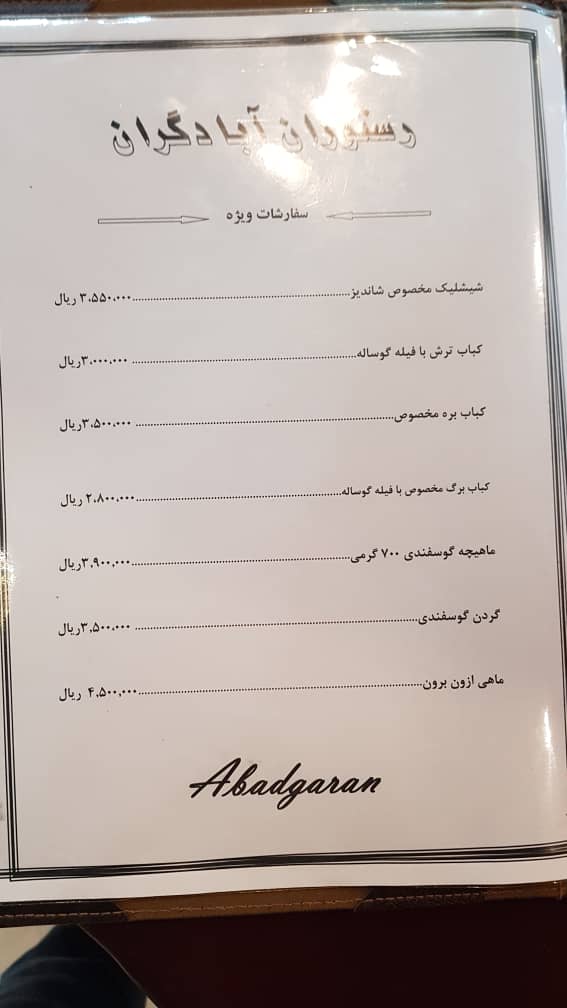 رستوران آبادگران
سفارشات ویژه
شیشلیک مخصوص شاندیز........................۳،۵۵۰،۰۰۰ ریال
کباب ترش با فیله گوساله........................۳،۰۰۰،۰۰۰ریال
کباب بره مخصوص........................۳،۵۰۰،۰۰۰ریال
کباب برگ مخصوص با فیله گوساله........................۲،۸۰۰،۰۰۰ ریال
ماهیچه گوسفندی ۷۰۰ گرمی........................۳,۹۰۰,۰۰۰ریال
گردن گوسفندی........................۳,۵۰۰،۰۰۰ریال
ماهی ازون برون........................۴,۵۰۰,۰۰۰ ریال
Abadgaran